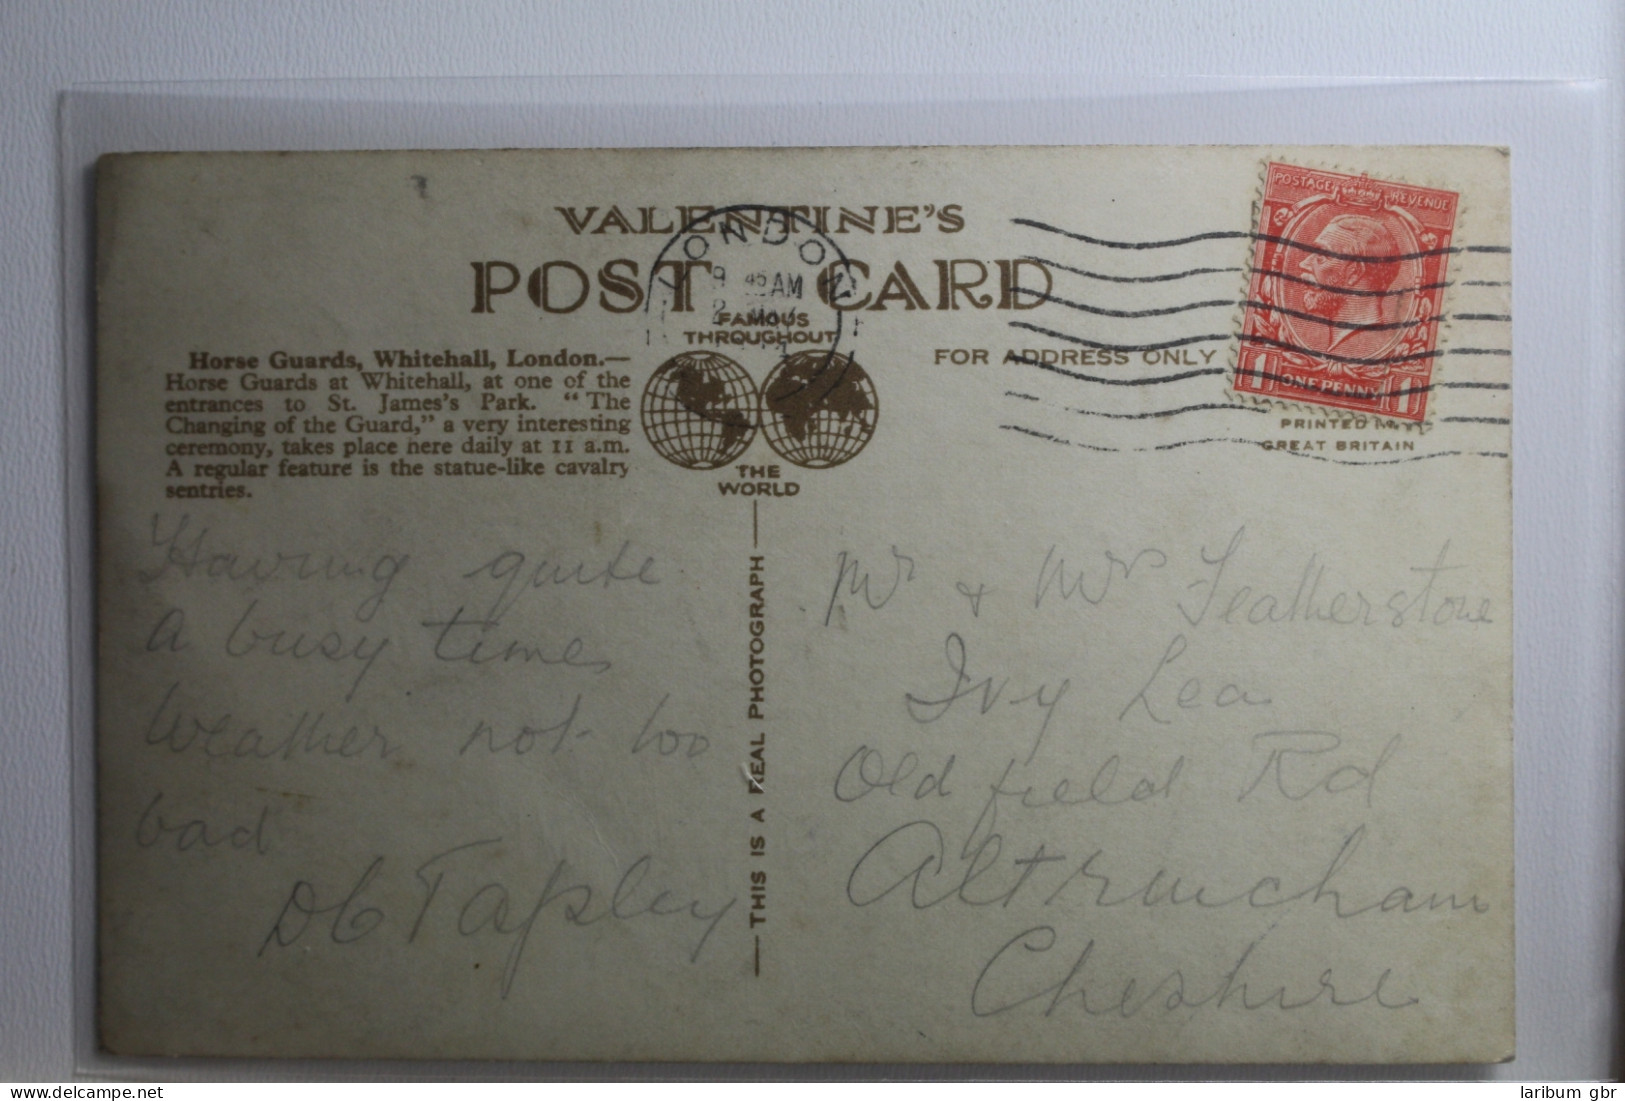 VALENTINE'S
POST CARD
LONDON
9 45 AM
FAMOUS
THROUGHOUT
THE
WORLD
POSTAGE REVENUE
1 ONE PENNY 1
FOR ADDRESS ONLY
PRINTED IN
GREAT BRITAIN
Horse Guards, Whitehall, London.—
Horse Guards at Whitehall, at one of the
entrances to St. James's Park. "The
Changing of the Guard," a very interesting
ceremony, takes place nere daily at 11 a.m.
A regular feature is the statue-like cavalry
sentries.
Having quite
a busy time
Weather not too
bad
DG Tapley
THIS IS A REAL PHOTOGRAPH
Mr & Mrs Featherstone
Ivy Lea
Old field Rd
Altrincham
Cheshire
laribum gbr